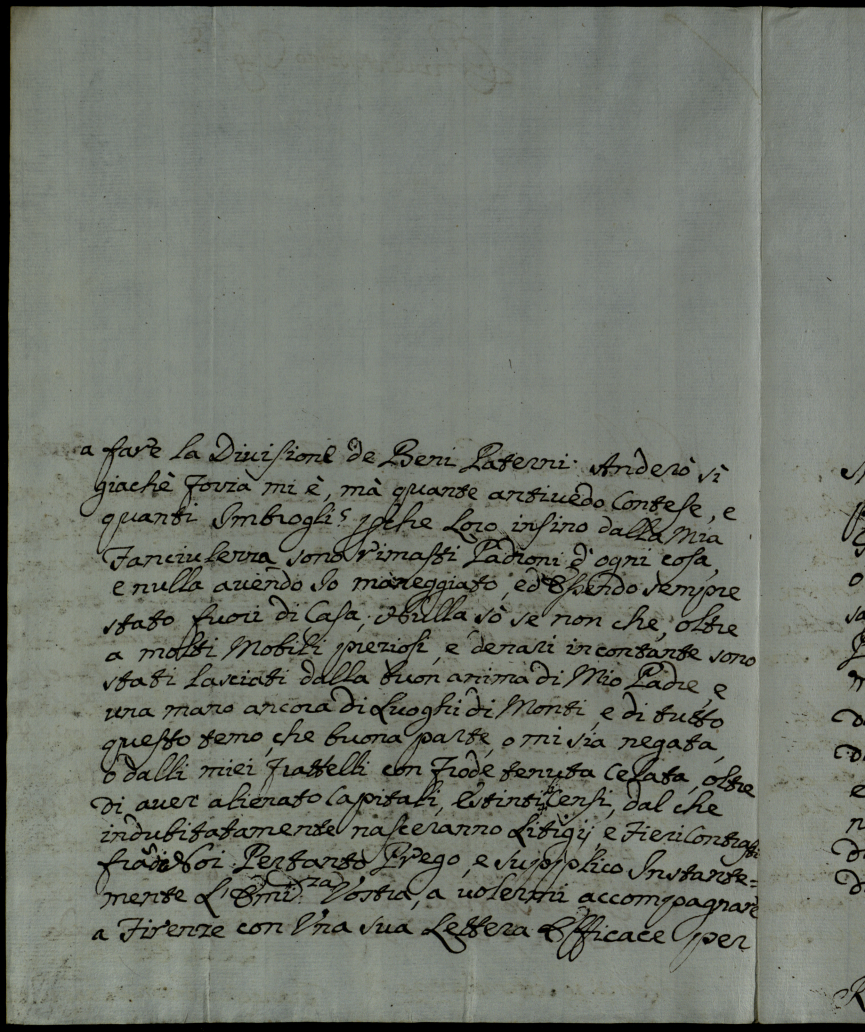 a fare la Divisione de Beni Paterni. Anderò sì
giachè forza mi è, mà quante antivedo Contese, e
quanti Imbrogli! pche Loro insino dalla Mia
Fanciulezza sono rimasti Padroni d'ogni cosa,
e nulla avendo Io maneggiato, ed Essendo sempre
stato fuori di Casa, Nulla sò se non che, oltre
a molti Mobili preziosi, e denari in contante sono
stati lasciati dalla buon anima di Mio Padre, e
una mano ancora di Luoghi di Monti, e di tutto
questo temo, che buona parte, o mi sia negata,
o dalli miei fratelli con frode tenuta Celata, oltre
di aver alienato Capitali, Estinti Censi, dal che
indubitatamente nasceranno Litigij, e Fieri Contrasti
frà di Noi. Pertanto Prego, e supplico Instante=
mente L'Emi.za Vostra, a volermi accompagnare
a Firenze con Una sua Lettera Efficace per